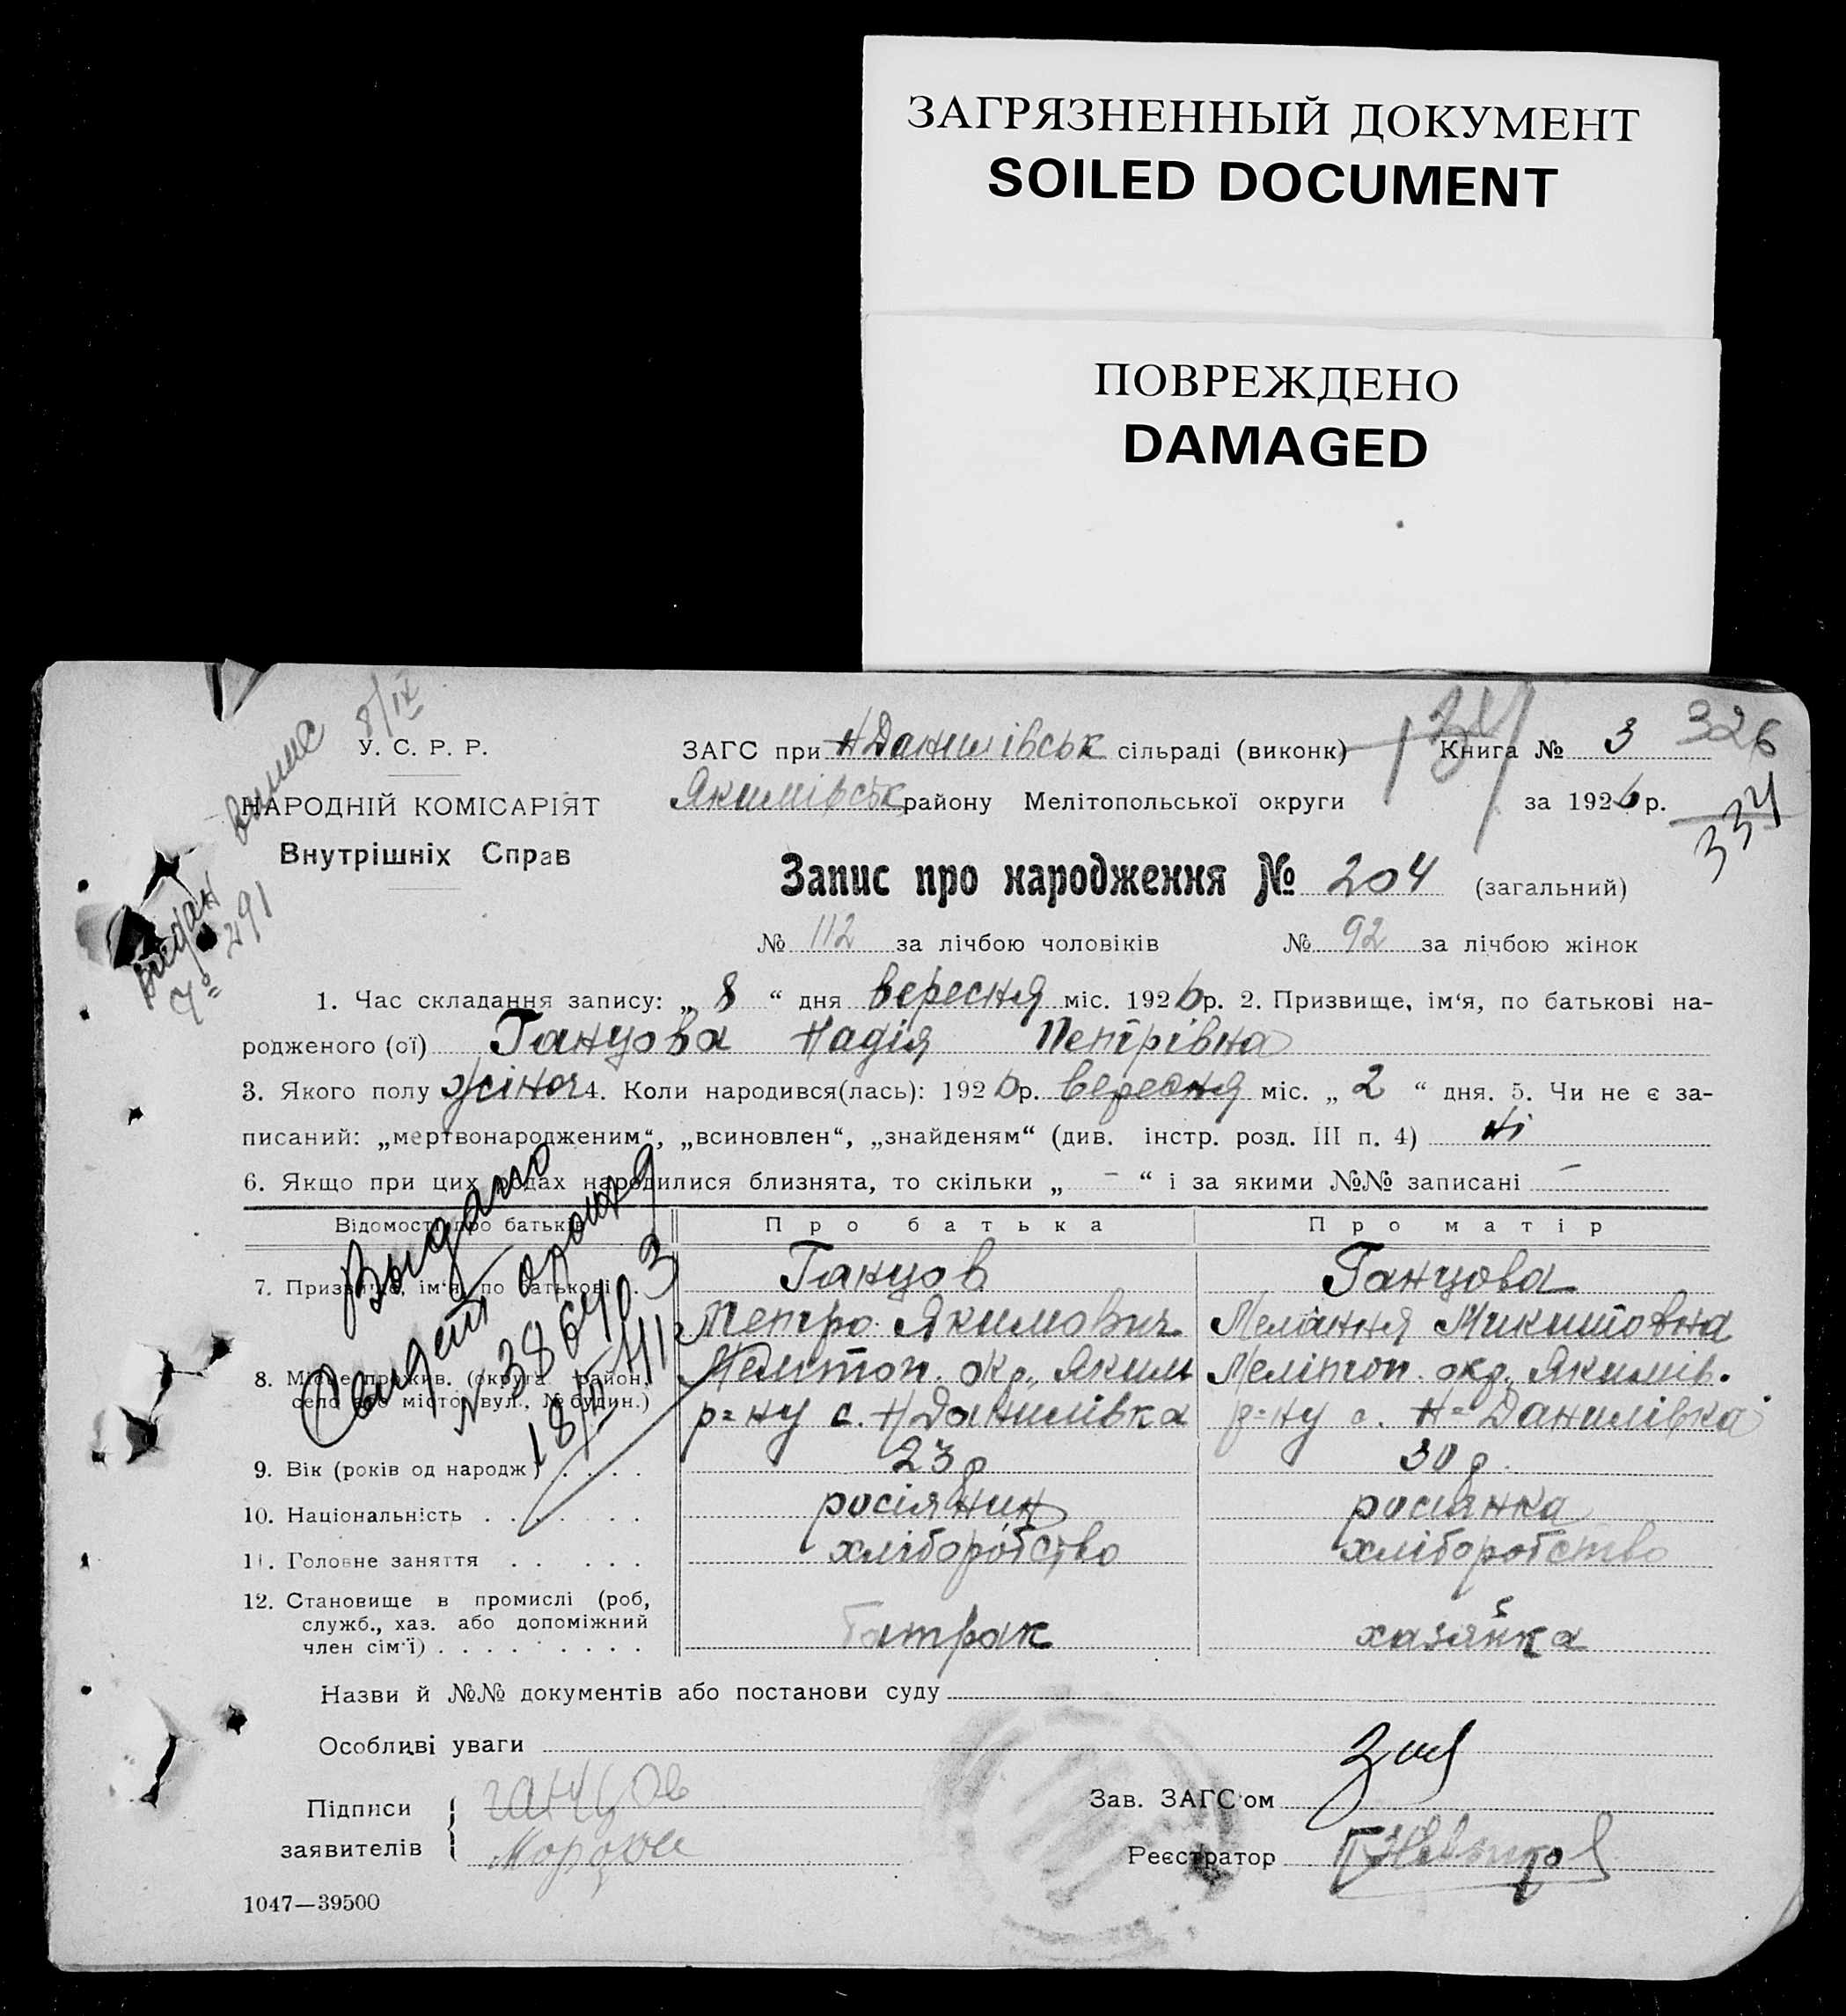 ЗАГРЯЗНЕННЫЙ ДОКУМЕНТ
SOILED DOCUMENT
ПОВРЕЖДЕНО
DAMAGED
326
334
8/IX
У. С. Р. Р.
НАРОДНІЙ КОМІСАРІЯТ
Внутрішніх Справ
291
ЗАГС при Н Данилівськ сільраді (виконк) Книга № 3
Якимівськ району Мелітопольської округи за 1926 р.
Запис про народження № 204 (загальний)
№ 112 за лічбою чоловіків № 92 за лічбою жінок
1. Час складання запису: „ 8 “ дня вересня міс. 1926 р. 2. Призвище, ім‘я, по батькові на-
родженого (ої) Ганцова Надія Петрівна
3. Якого полу жіноч 4. Коли народився(лась): 1926 р. вересня міс. „ 2 “ дня. 5. Чи не є за-
писаний: „мертвонародженим“, „всиновлен“, „знайденям“ (див. інстр. розд. III п. 4) ні
6. Якщо при цих родах народилися близнята, то скільки „ – “ і за якими №№ записані –
Відомості про батьків Про батька Про матір
7. Призвище, ім‘я, по батькові . Ганцов Ганцова
Петро Якимович Мелання Микитовна
8. Місце прожив. (округа район, Мелитоп. окр., Яким Мелітоп. окр., Якимів.
село або місто, вул., № будин.) р=ну с. Н Данилівка р=ну с. Н= Данилівка
9. Вік (років од народж) . . . . 23 р 30 р.
10. Національність . . . . . . росіянин росіянка
11. Головне заняття . . . . . хліборобство хліборобство
12. Становище в промислі (роб,
служб., хаз. або допоміжний
член сім‘ї) . . . . . . . . . батрак хазяйка
Выдано
№ 386403
Назви й №№ документів або постанови суду
Особливі уваги
Підписи ганцов
заявителів
Зав. ЗАГС‘ом
Реєстратор
1047—39500